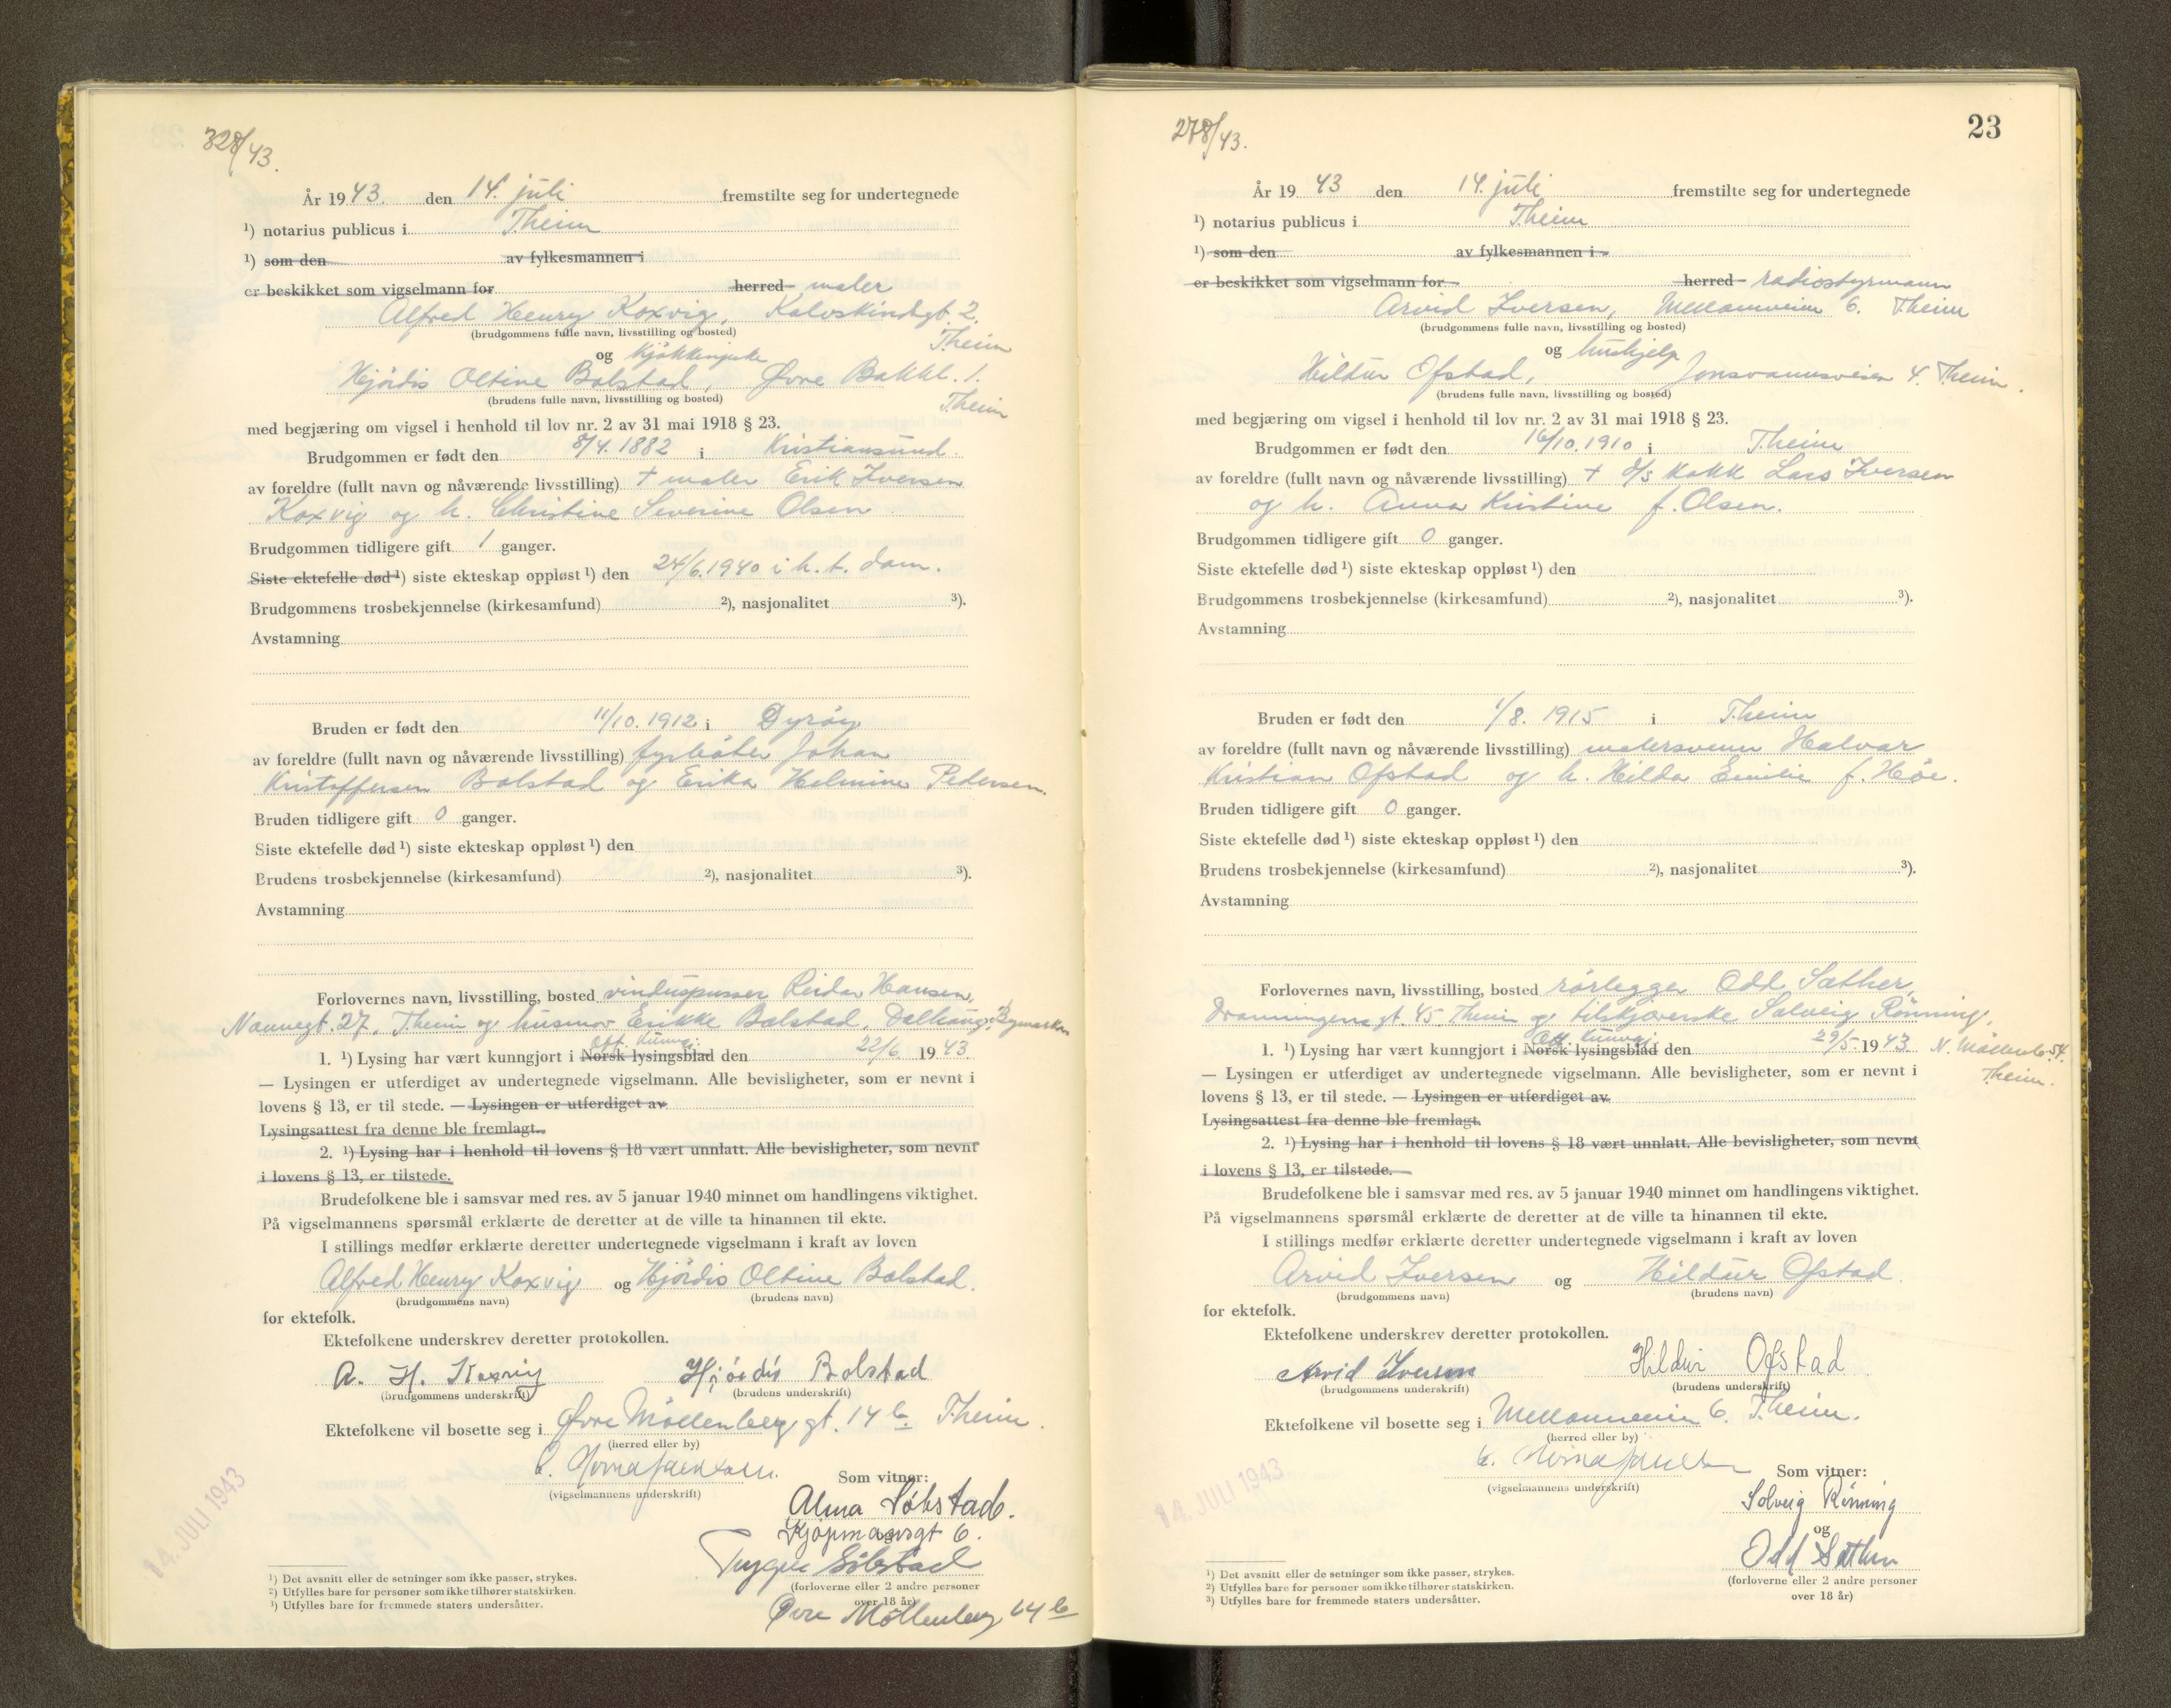 328/43.
År 1943. den 14. juli fremstilte seg for undertegnede
¹) notarius publicus i T.heim
¹) som den av fylkesmannen i
er beskikket som vigselmann for herred maler
Alfred Henry Koxvig, Kalvskindgt 2.
(brudgommens fulle navn, livsstilling og bosted)
T.heim
og Kjøkkenpike
Hjördis Oltine Bolstad, Øvre Bakkl. 1.
(brudens fulle navn, livsstilling og bosted)
T.heim
med begjæring om vigsel i henhold til lov nr. 2 av 31 mai 1918 § 23.
Brudgommen er født den 8/4. 1882 i Kristiansund.
av foreldre (fullt navn og nåværende livsstilling) + maler Erik Iversen
Koxvig og h. Christine Severine Olsen
Brudgommen tidligere gift 1 ganger.
Siste ektefelle død ¹) siste ekteskap oppløst ¹) den 24/6. 1940 i h. t. dom.
Brudgommens trosbekjennelse (kirkesamfund) ²), nasjonalitet ³).
Avstamning
Bruden er født den 11/10. 1912 i Dyröy
av foreldre (fullt navn og nåværende livsstilling) fyrböter Johan
Kristoffersen Bolstad og Erika Helmine Pedersen.
Bruden tidligere gift 0 ganger.
Siste ektefelle død ¹) siste ekteskap oppløst ¹) den
Brudens trosbekjennelse (kirkesamfund) ²), nasjonalitet ³).
Avstamning
Forlovernes navn, livsstilling, bosted vinduspusser Reidar Hansen,
Nonnegt. 27, T.heim og husmor Erikke Bolstad, Dalhaug, Bymarken
Off. kunngj.
1. ¹) Lysing har vært kunngjort i Norsk lysingsblad den 22/6 1943.
— Lysingen er utferdiget av undertegnede vigselmann. Alle bevisligheter, som er nevnt i
lovens § 13, er til stede. — Lysingen er utferdiget av
Lysingsattest fra denne ble fremlagt.
2. ¹) Lysing har i henhold til lovens § 18 vært unnlatt. Alle bevisligheter, som nevnt
i lovens § 13, er tilstede.
Brudefolkene ble i samsvar med res. av 5 januar 1940 minnet om handlingens viktighet.
På vigselmannens spørsmål erklærte de deretter at de ville ta hinannen til ekte.
I stillings medfør erklærte deretter undertegnede vigselmann i kraft av loven
Alfred Henry Koxvig og Hjördis Oltine Bolstad.
(brudgommens navn) (brudens navn)
for ektefolk.
Ektefolkene underskrev deretter protokollen.
A. H. Koxvig Hjördis Bolstad
(brudgommens underskrift) (brudens underskrift)
Ektefolkene vil bosette seg i Øvre Möllenberg gt. 14 b T.heim.
(herred eller by)
Som vitner:
(vigselmannens underskrift)
Alma Sölstad.
Kjöpmansgt 6.
og
Trygve Sölstad
(forloverne eller 2 andre personer
over 18 år)
Øvre Möllenberg 14 b
14. JULI 1943
¹) Det avsnitt eller de setninger som ikke passer, strykes.
²) Utfylles bare for personer som ikke tilhører statskirken.
³) Utfylles bare for fremmede staters undersåtter.
278/43.
23
År 1943 den 14. juli fremstilte seg for undertegnede
¹) notarius publicus i T.heim
¹) som den av fylkesmannen i
er beskikket som vigselmann for herred radiostyrmann
Arvid Iversen, Mellomveien 6. T.heim
(brudgommens fulle navn, livsstilling og bosted)
og hushjelp
Hildur Ofstad, Jonsvannsveien 4. T.heim.
(brudens fulle navn, livsstilling og bosted)
med begjæring om vigsel i henhold til lov nr. 2 av 31 mai 1918 § 23.
Brudgommen er født den 16/10. 1910 i T.heim
av foreldre (fullt navn og nåværende livsstilling) + d/s kokk Lars Iversen
og h. Anna Kristine f. Olsen.
Brudgommen tidligere gift 0 ganger.
Siste ektefelle død ¹) siste ekteskap oppløst ¹) den
Brudgommens trosbekjennelse (kirkesamfund) ²), nasjonalitet ³).
Avstamning
Bruden er født den 1/8. 1915 i T.heim
av foreldre (fullt navn og nåværende livsstilling) malersvenn Halvar
Kristian Ofstad og h. Hilda Emilie f. Höe.
Bruden tidligere gift 0 ganger.
Siste ektefelle død ¹) siste ekteskap oppløst ¹) den
Brudens trosbekjennelse (kirkesamfund) ²), nasjonalitet ³).
Avstamning
Forlovernes navn, livsstilling, bosted rörlegger Odd Sæther,
Dronningensgt. 45. T.heim og tilskjærerske Solveig Rönning,
Off. kunngj.
1. ¹) Lysing har vært kunngjort i Norsk lysingsblad den 29/5. 1943. N. Möllenb. 54.
T.heim.
— Lysingen er utferdiget av undertegnede vigselmann. Alle bevisligheter, som er nevnt i
lovens § 13, er til stede. — Lysingen er utferdiget av
Lysingsattest fra denne ble fremlagt.
2. ¹) Lysing har i henhold til lovens § 18 vært unnlatt. Alle bevisligheter, som nevnt
i lovens § 13, er tilstede.
Brudefolkene ble i samsvar med res. av 5 januar 1940 minnet om handlingens viktighet.
På vigselmannens spørsmål erklærte de deretter at de ville ta hinannen til ekte.
I stillings medfør erklærte deretter undertegnede vigselmann i kraft av loven
Arvid Iversen og Hildur Ofstad.
(brudgommens navn) (brudens navn)
for ektefolk.
Ektefolkene underskrev deretter protokollen.
Arvid Iversen Hildur Ofstad
(brudgommens underskrift) (brudens underskrift)
Ektefolkene vil bosette seg i Mellomveien 6. T.heim.
(herred eller by)
Som vitner:
(vigselmannens underskrift)
Solveig Rönning
og
Odd Sæther
(forloverne eller 2 andre personer
over 18 år)
14. JULI 1943
¹) Det avsnitt eller de setninger som ikke passer, strykes.
²) Utfylles bare for personer som ikke tilhører statskirken.
³) Utfylles bare for fremmede staters undersåtter.